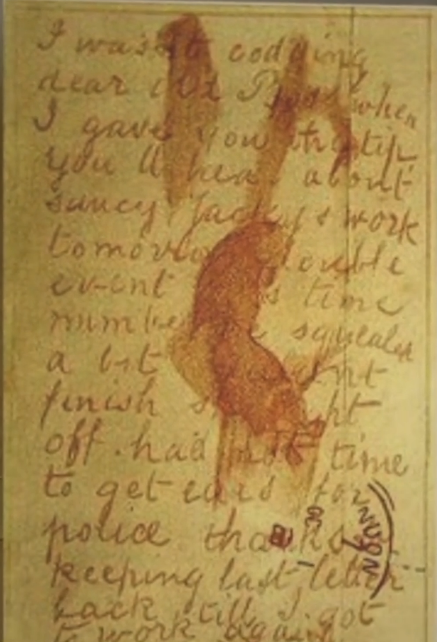 I wasnt codding
dear old Boss when
I gave you the tip
youll hear about
saucy Jackys work
tomorrow double
event time
number squealed
a bit
finish
off. had not time
to get ears for
police thanks
keeping last letter
back till I got
to work again
OC